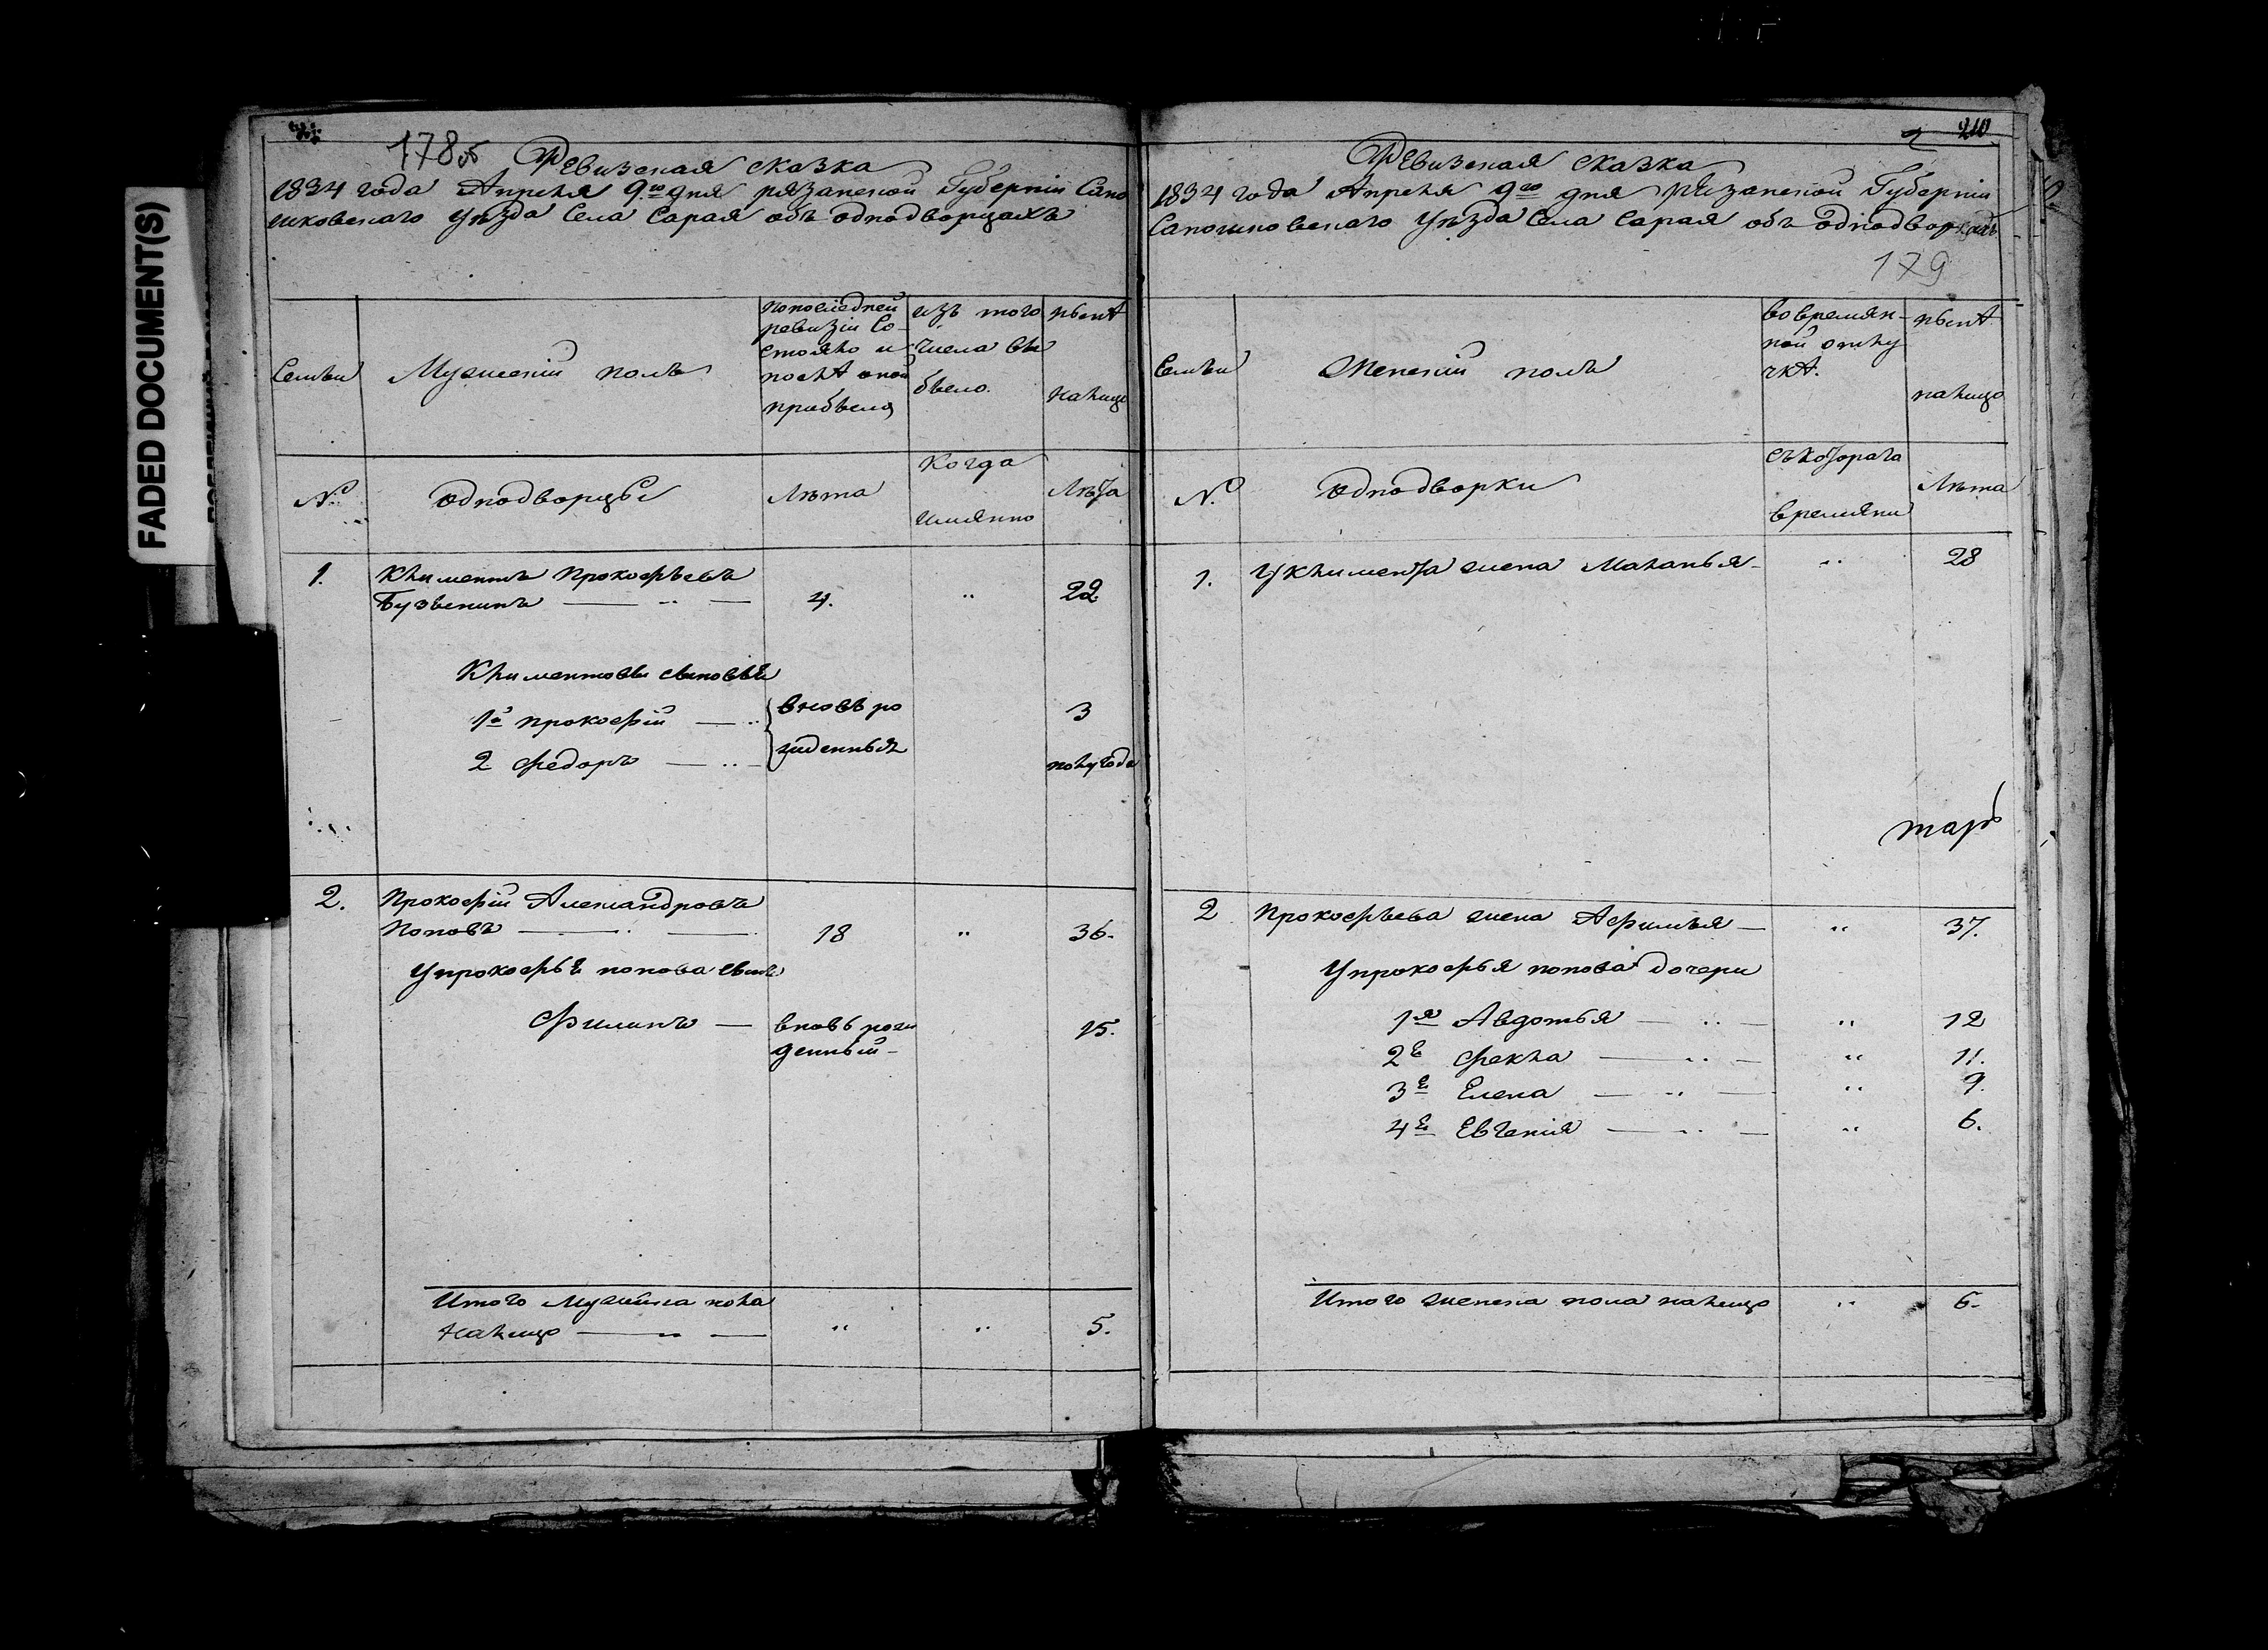 FADED DOCUMENT(S)
178об Ревизская сказка
1834 года Апреля 9го дня рязанской Губернiи Сапо
жковского уѣзда села Сарая объ однодворцахъ
Семьи
Мужескiй полъ
попоследней
ревизiи со-
стояло и
послѣ оной
прибыло
изъ того
числа вы
было.
нынѣ
налицо
№
Однодворцы
Лѣта
Когда
имянно
Лѣта
1.
Климентъ Прокофьевъ
4.
22
Климентовы сыновья
1й прокофiй
вновь ро
3
2 Федоръ
жденныя
полугода
2.
Прокофiй Александровъ
Поповъ
18
36.
Упрокофья попова сынъ
Филипъ
вновь рож
денный
15.
Итого Мужеска пола
налицо
5.
210
Ревизская сказка
1834 года Апреля 9го дня Рязанской Губернiи
Сапожковского уѣзда села Сарая объ однодворцахъ
179
Семьи
Женскiй полъ
вовремян-
ной отлу
чкѣ.
нынѣ
налицо
№
Однодворки
съкотораго
времяни
Лѣта
1.
Уклимента жена Маланья
28
2
Прокофьева жена Афимья
37.
Упрокофья попова дочери
1я Авдотья
12
2я Фекла
11.
3я Елена
9.
4я Евгенiя
6.
Итого женска пола налицо
6.